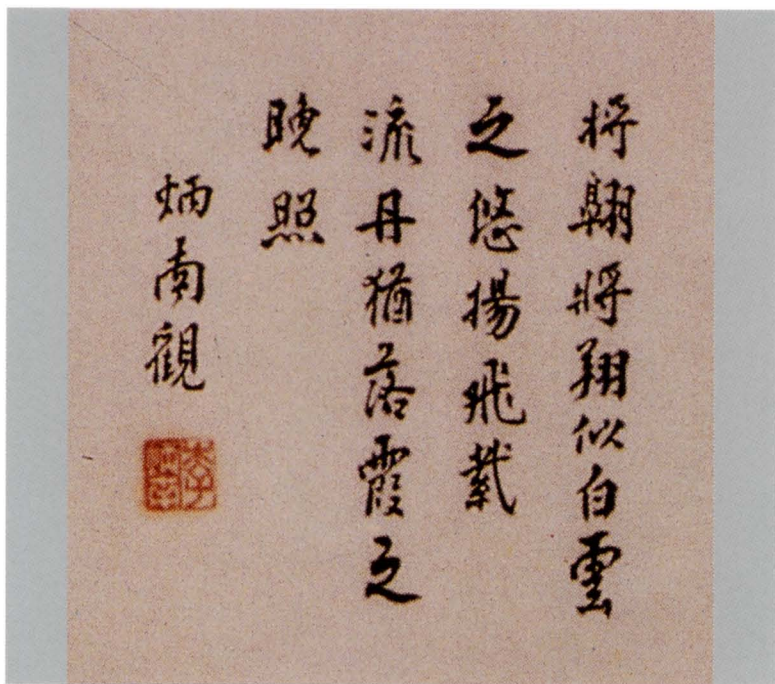 将翺將翔似白雲
之悠揚飛紫
流丹猶落霞之
晚照
炳南觀
李炳南